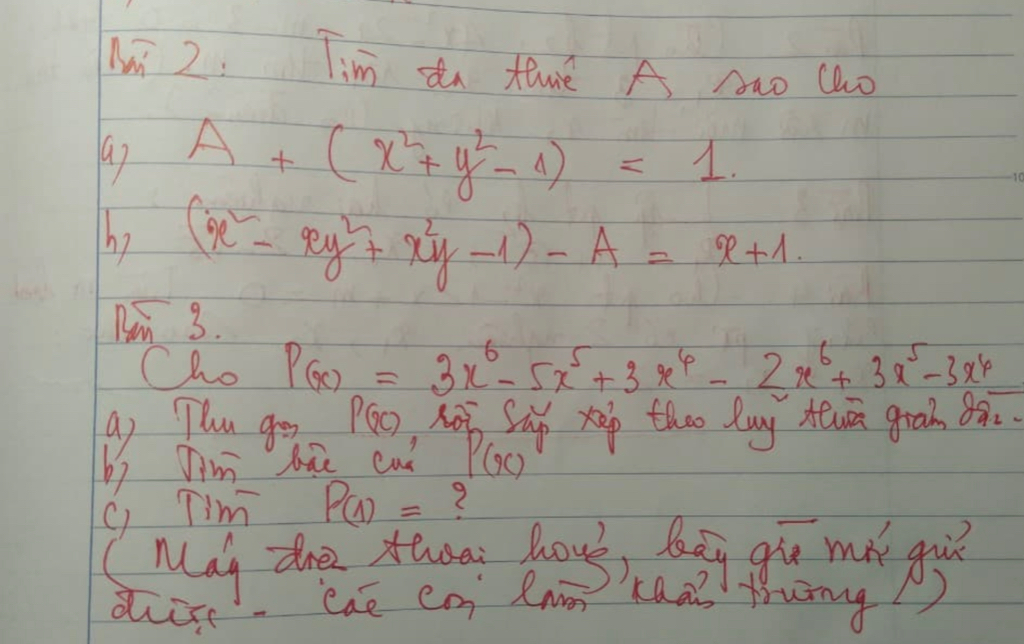 Bài 2: Tìm đa thức A sao cho
a, A + (x² + y² - 1) = 1.
b, (x² - xy² + x²y - 1) - A = x + 1.
Bài 3.
Cho P(x) = 3x⁶ - 5x⁵ + 3x⁴ - 2x⁶ + 3x⁵ - 3x⁴
a) Thu gọn P(x), rồi sắp xếp theo luỹ thừa giảm dần.
b) Tìm bậc của P(x)
c) Tìm P(1) = ?
( Máy điện thoại hỏng, bây giờ mới gửi
được - các con làm khẩn trương !)
10